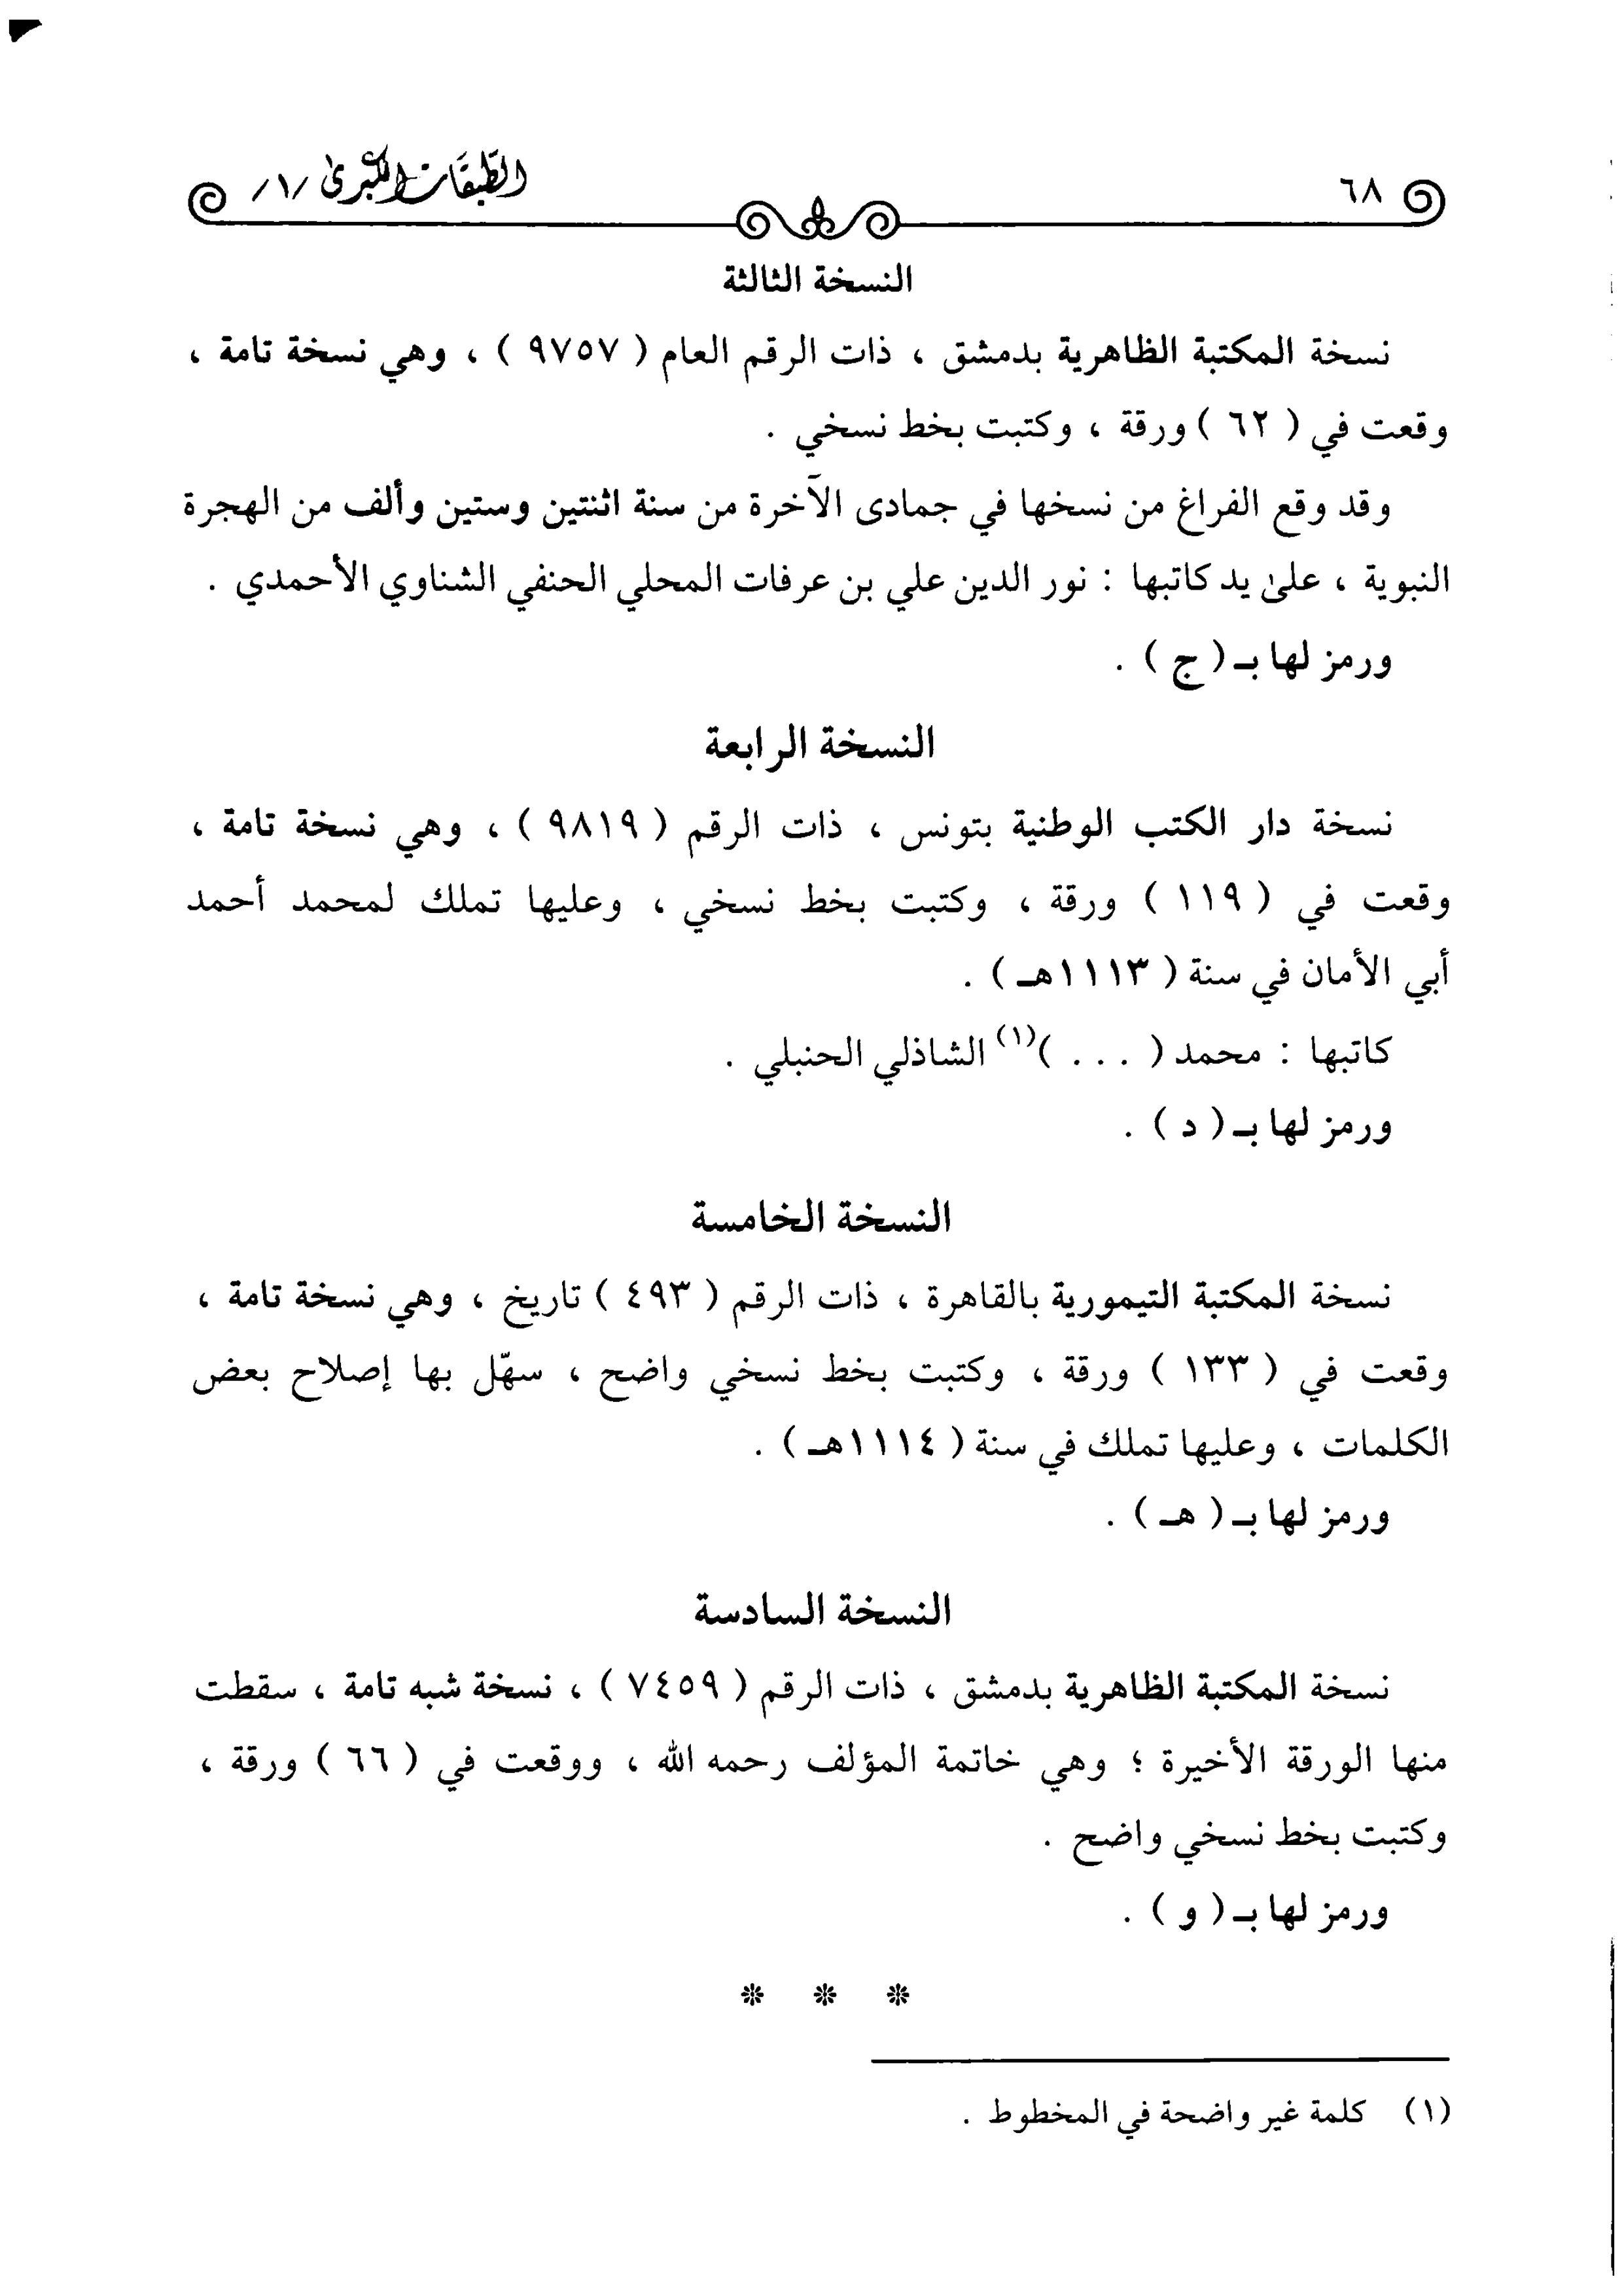 ٦٨
الطبقات الكبرى /١/
النسخة الثالثة
نسخة المكتبة الظاهرية بدمشق ، ذات الرقم العام ( ٩٧٥٧ ) ، وهي نسخة تامة ،
وقعت في ( ٦٢ ) ورقة ، وكتبت بخط نسخي .
وقد وقع الفراغ من نسخها في جمادى الآخرة من سنة اثنتين وستين وألف من الهجرة
النبوية ، علىٰ يد كاتبها : نور الدين علي بن عرفات المحلي الحنفي الشناوي الأحمدي .
ورمز لها بـ ( ج ) .
النسخة الرابعة
نسخة دار الكتب الوطنية بتونس ، ذات الرقم ( ٩٨١٩ ) ، وهي نسخة تامة ،
وقعت في ( ١١٩ ) ورقة ، وكتبت بخط نسخي ، وعليها تملك لمحمد أحمد
أبي الأمان في سنة ( ١١١٣هـ ) .
كاتبها : محمد ( . . . )(١) الشاذلي الحنبلي .
ورمز لها بـ ( د ) .
النسخة الخامسة
نسخة المكتبة التيمورية بالقاهرة ، ذات الرقم ( ٤٩٣ ) تاريخ ، وهي نسخة تامة ،
وقعت في ( ١٣٣ ) ورقة ، وكتبت بخط نسخي واضح ، سهّل بها إصلاح بعض
الكلمات ، وعليها تملك في سنة ( ١١١٤هـ ) .
ورمز لها بـ ( هـ ) .
النسخة السادسة
نسخة المكتبة الظاهرية بدمشق ، ذات الرقم ( ٧٤٥٩ ) ، نسخة شبه تامة ، سقطت
منها الورقة الأخيرة ؛ وهي خاتمة المؤلف رحمه الله ، ووقعت في ( ٦٦ ) ورقة ،
وكتبت بخط نسخي واضح .
ورمز لها بـ ( و ) .
* * *
(١) كلمة غير واضحة في المخطوط .